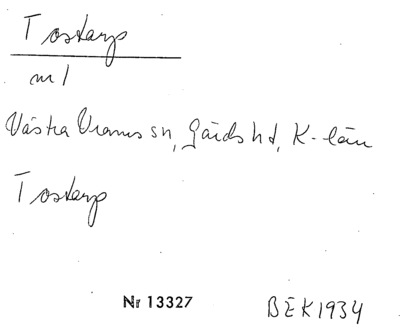 Tostarp
m 1
Västra Vrams sn, Gärds hd, K-län
Tostarp
Nr 13327 BEK 1934